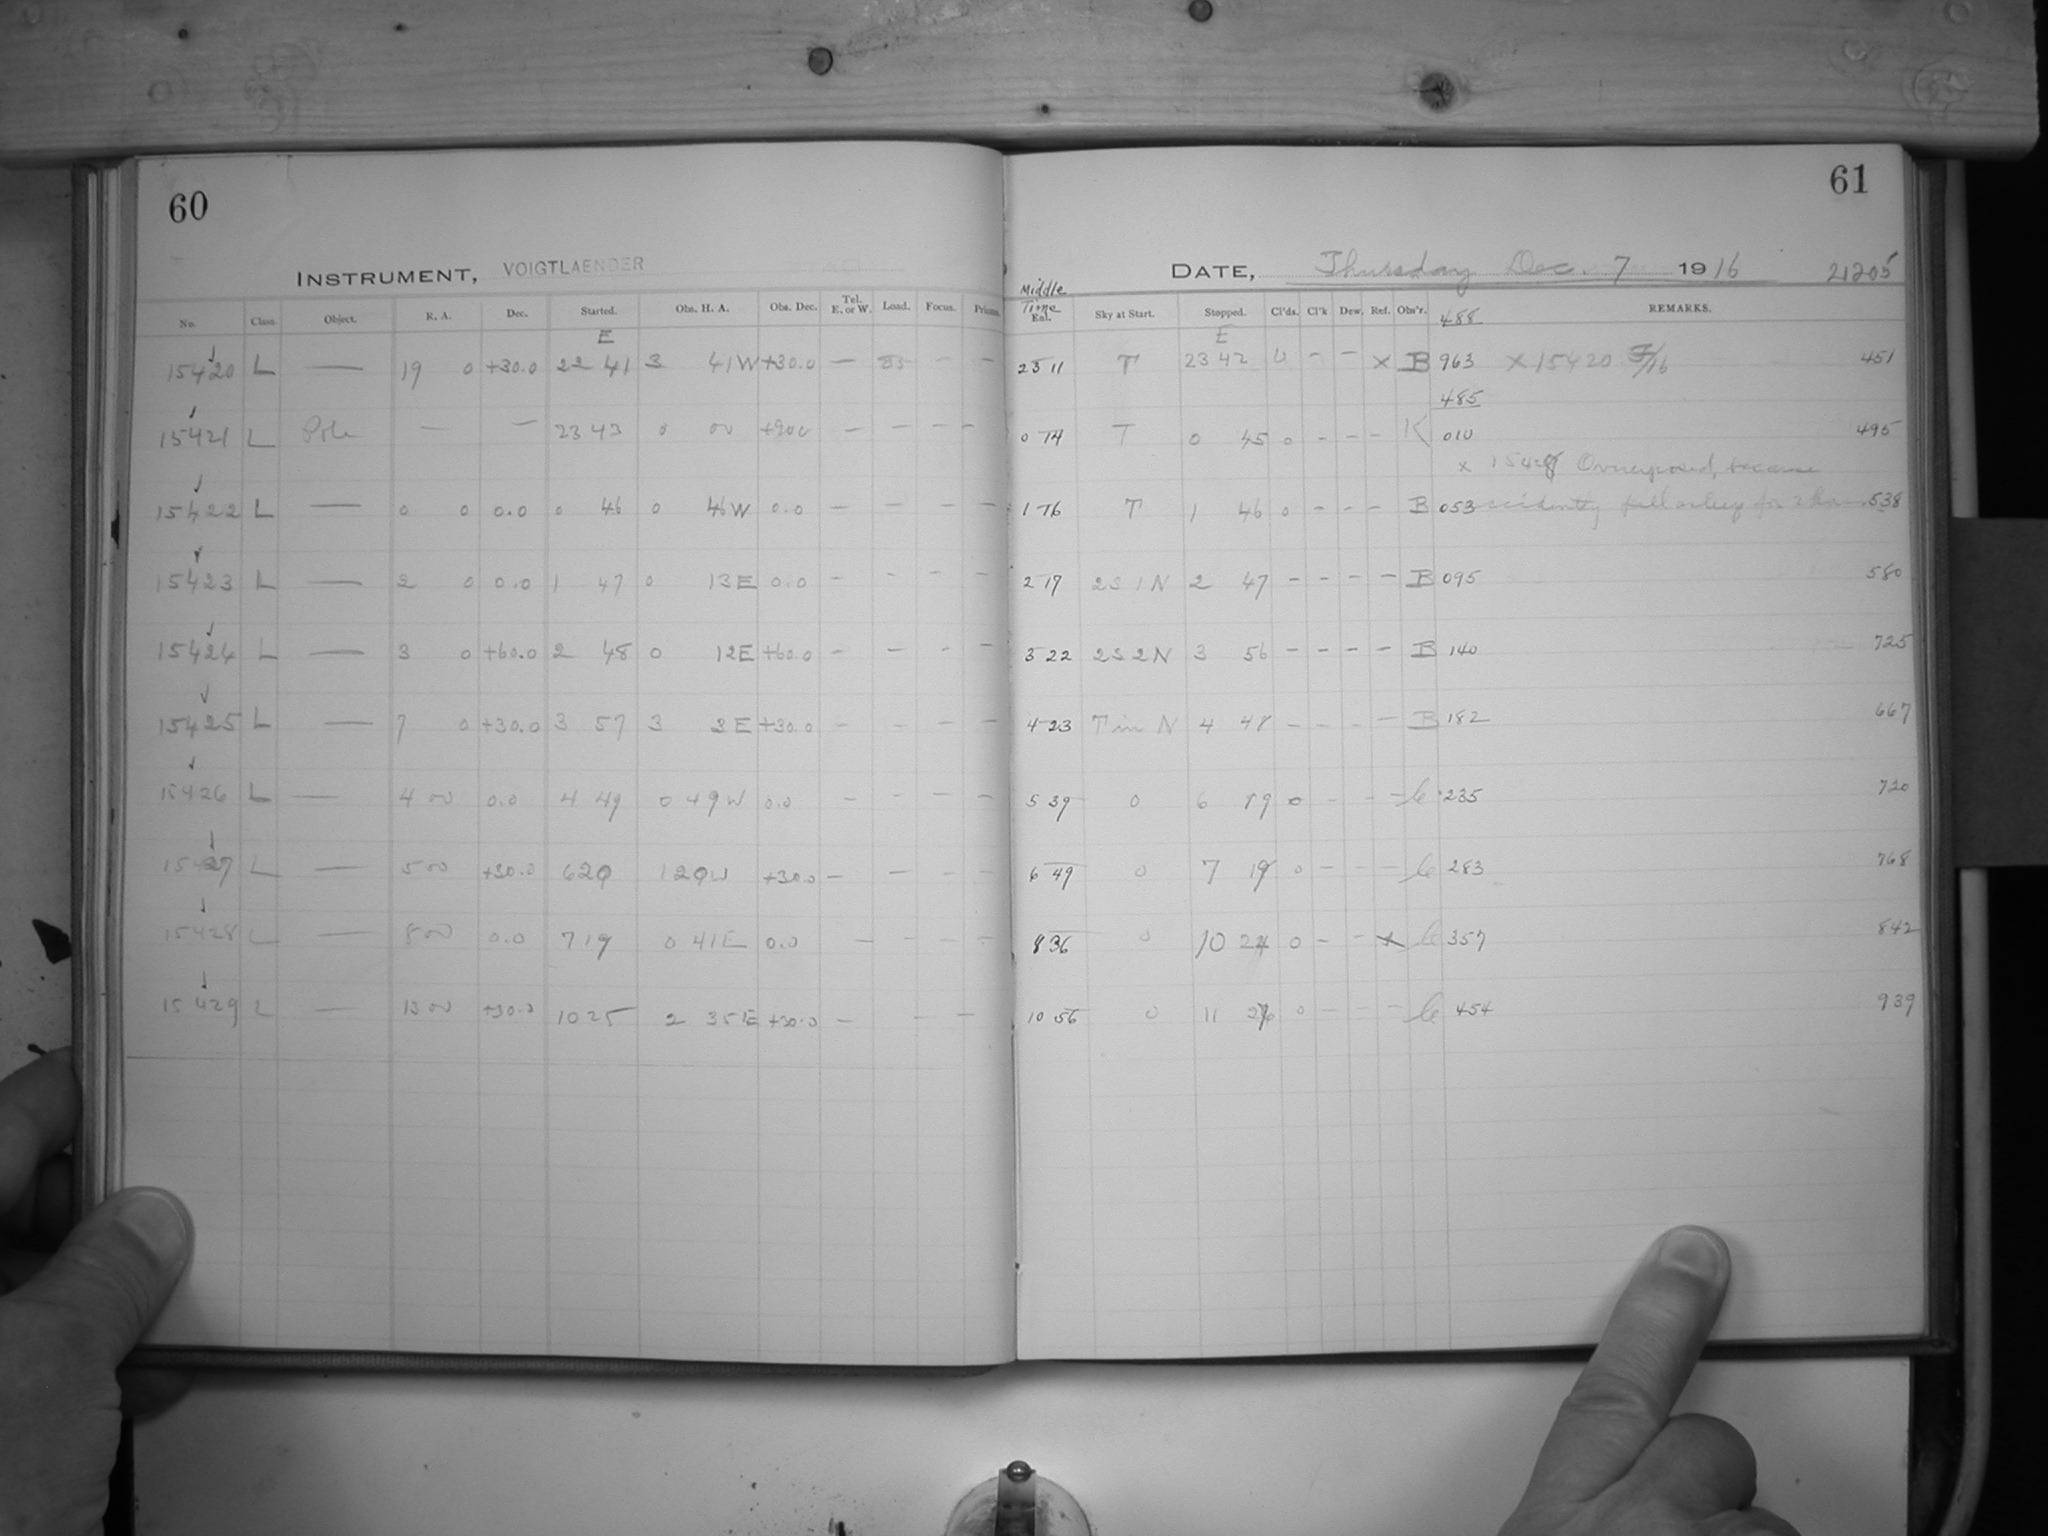 60
61
INSTRUMENT, VOIGTLAENDER
DATE, Thursday Dec. 7 1916 21205
No. Class. Object. R. A. Dec. Started. Obs. H. A. Obs. Dec. Tel. E. or W. Load. Focus. Middle Time Sky at Start. Stopped. Cl'ds. Cl'k Dew. Ref. Obs'r. REMARKS.
E E 488
15420 L — 19 0 +30.0 22 41 3 41W +30.0 — — — 23 11 T 23 42 0 — — X B 963 X 15420 451
485
15421 L Pole — — 23 43 0 00 — — — — 0 14 T 0 45 0 — — — K 010 495
x 15428 Overexposed, because
15422 L — 0 0 0.0 0 46 0 46W 0.0 — — — — 1 16 T 1 46 0 — — — B 053 accidently fell asleep for 2 538
15423 L — 2 0 0.0 1 47 0 13E 0.0 — — — — 2 17 2S 1N 2 47 — — — — B 095 580
15424 L — 3 0 +60.0 2 48 0 12E +60.0 — — — — 3 22 2S 2N 3 56 — — — — B 140 725
15425 L — 7 0 +30.0 3 57 3 2E +30.0 — — — — 4 23 T in N 4 48 — — — — B 182 667
15426 L — 4 00 0.0 4 49 0 49W 0.0 — — — — 5 39 0 6 19 0 — — — 235 720
15427 L — 5 00 +30.0 620 1 20W +30.0 — — — — 6 49 0 7 19 0 — — — 283 768
15428 L 8 00 0.0 7 19 0 41E 0.0 — — — — 8 36 0 10 24 0 — — X 357 842
15429 L — 13 00 +30.0 10 25 2 35E +30.0 — — — 10 56 0 11 0 — — — 454 939